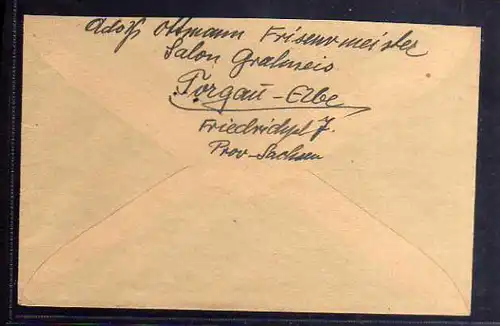 Adolf Ottmann Friseurmeister
Salon Gralmeis
Torgau-Elbe
Friedrichpl 7.
Prov-Sachsen